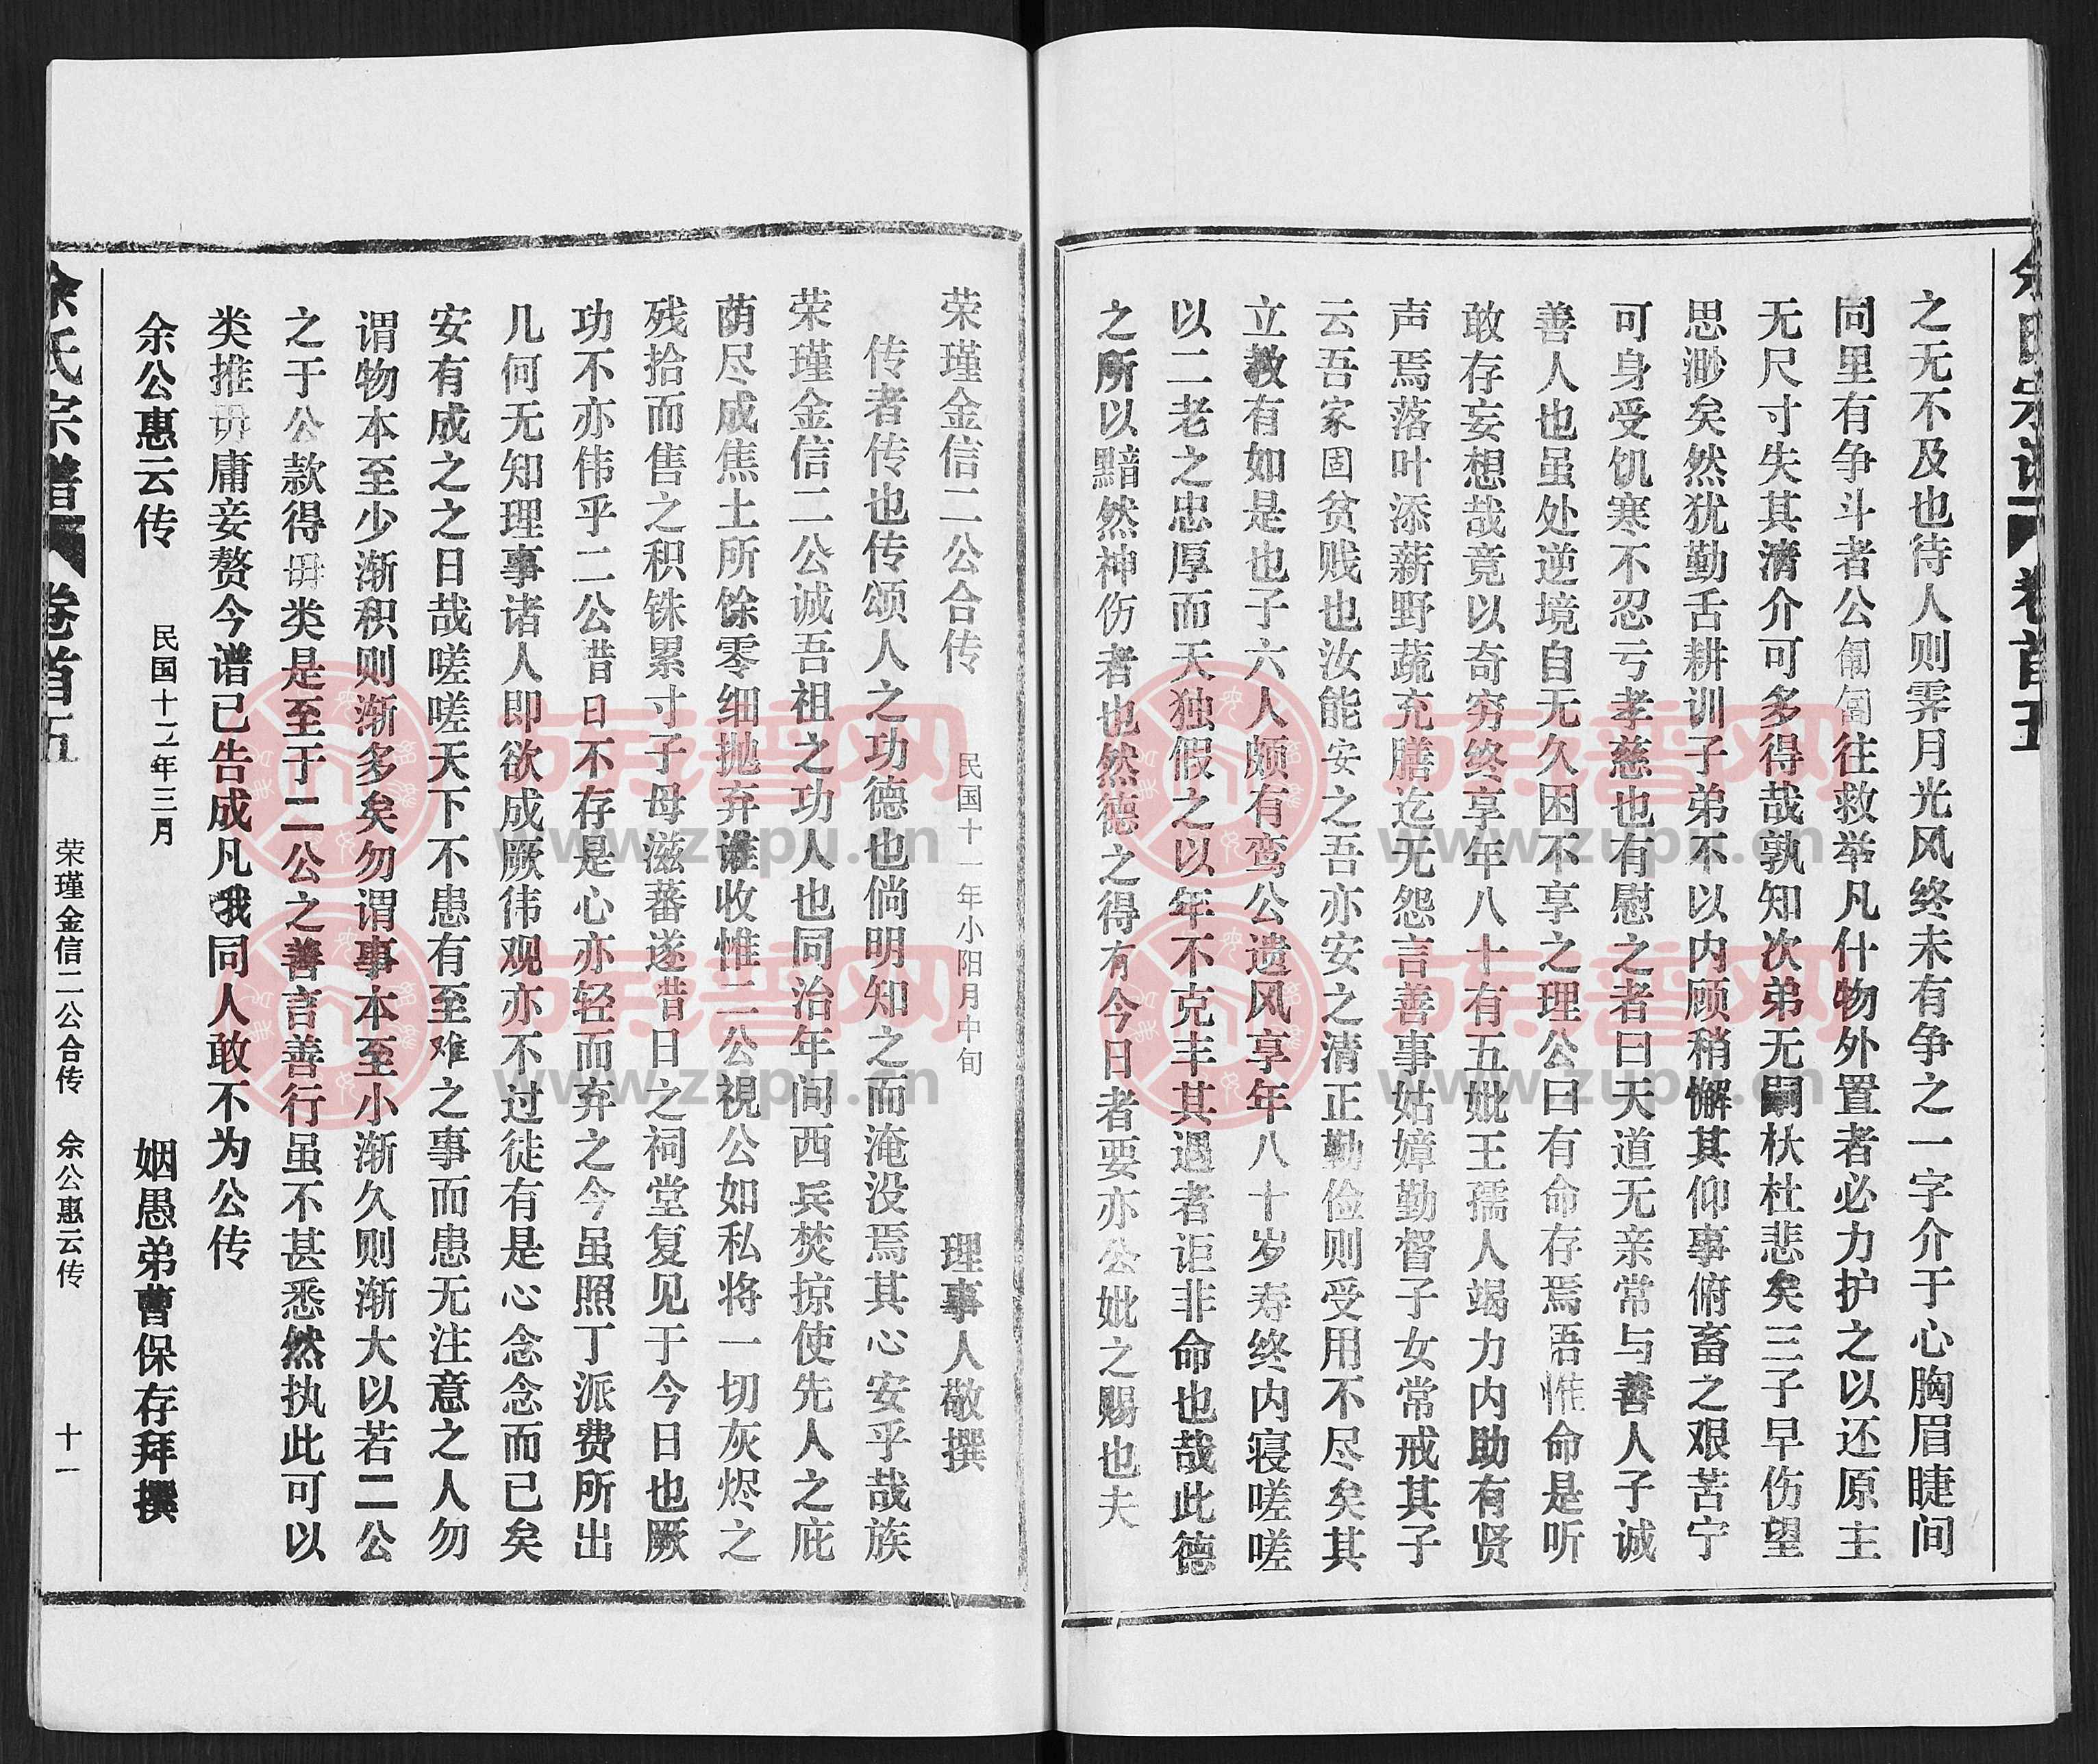 之无不及也待人则霁月光风终未有争之一字介于心胸眉睫间
同里有争斗者公匍匐往救举凡什物外置者必力护之以还原主
无尺寸失其清介可多得哉孰知次弟无嗣杕杜悲矣三子早伤望
思渺矣然犹勤舌耕训子弟不以内顾稍懈其仰事俯畜之艰苦宁
可身受饥寒不忍亏孝慈也有慰之者曰天道无亲常与善人子诚
善人也虽处逆境自无久困不享之理公曰有命存焉吾惟命是听
敢存妄想哉竟以奇穷终享年八十有五妣王孺人竭力内助有贤
声焉落叶添薪野蔬充膳迄无怨言善事姑嫜勤督子女常戒其子
云吾家固贫贱也汝能安之吾亦安之清正勤俭则受用不尽矣其
立教有如是也子六人颇有鸾公遗风享年八十岁寿终内寝嗟嗟
以二老之忠厚而天独假之以年不克丰其遇者讵非命也哉此德
之所以黯然神伤者也然德之得有今日者要亦公妣之赐也夫
荣瑾金信二公合传 民国十一年小阳月中旬 理事人敬撰
传者传也传颂人之功德也倘明知之而淹没焉其心安乎哉族
荣瑾金信二公诚吾祖之功人也同治年间西兵焚掠使先人之庇
荫尽成焦土所馀零细抛弃谁收惟二公視公如私将一切灰烬之
残拾而售之积铢累寸子母滋蕃遂昔日之祠堂复见于今日也厥
功不亦伟乎二公昔日不存是心亦轻而弃之今虽照丁派费所出
几何无知理事诸人即欲成厥伟观亦不过徒有是心念念而已矣
安有成之之日哉嗟嗟天下不患有至难之事而患无注意之人勿
谓物本至少渐积则渐多矣勿谓事本至小渐久则渐大以若二公
之于公款得毋类是至于二公之善言善行虽不甚悉然执此可以
类推毋庸妄赘今谱已告成凡哦同人敢不为公传
余公惠云传 民国十二年三月 姻愚弟曹保存拜撰
余氏宗谱 卷首五 荣瑾金信二公合传 余公惠云传 十一